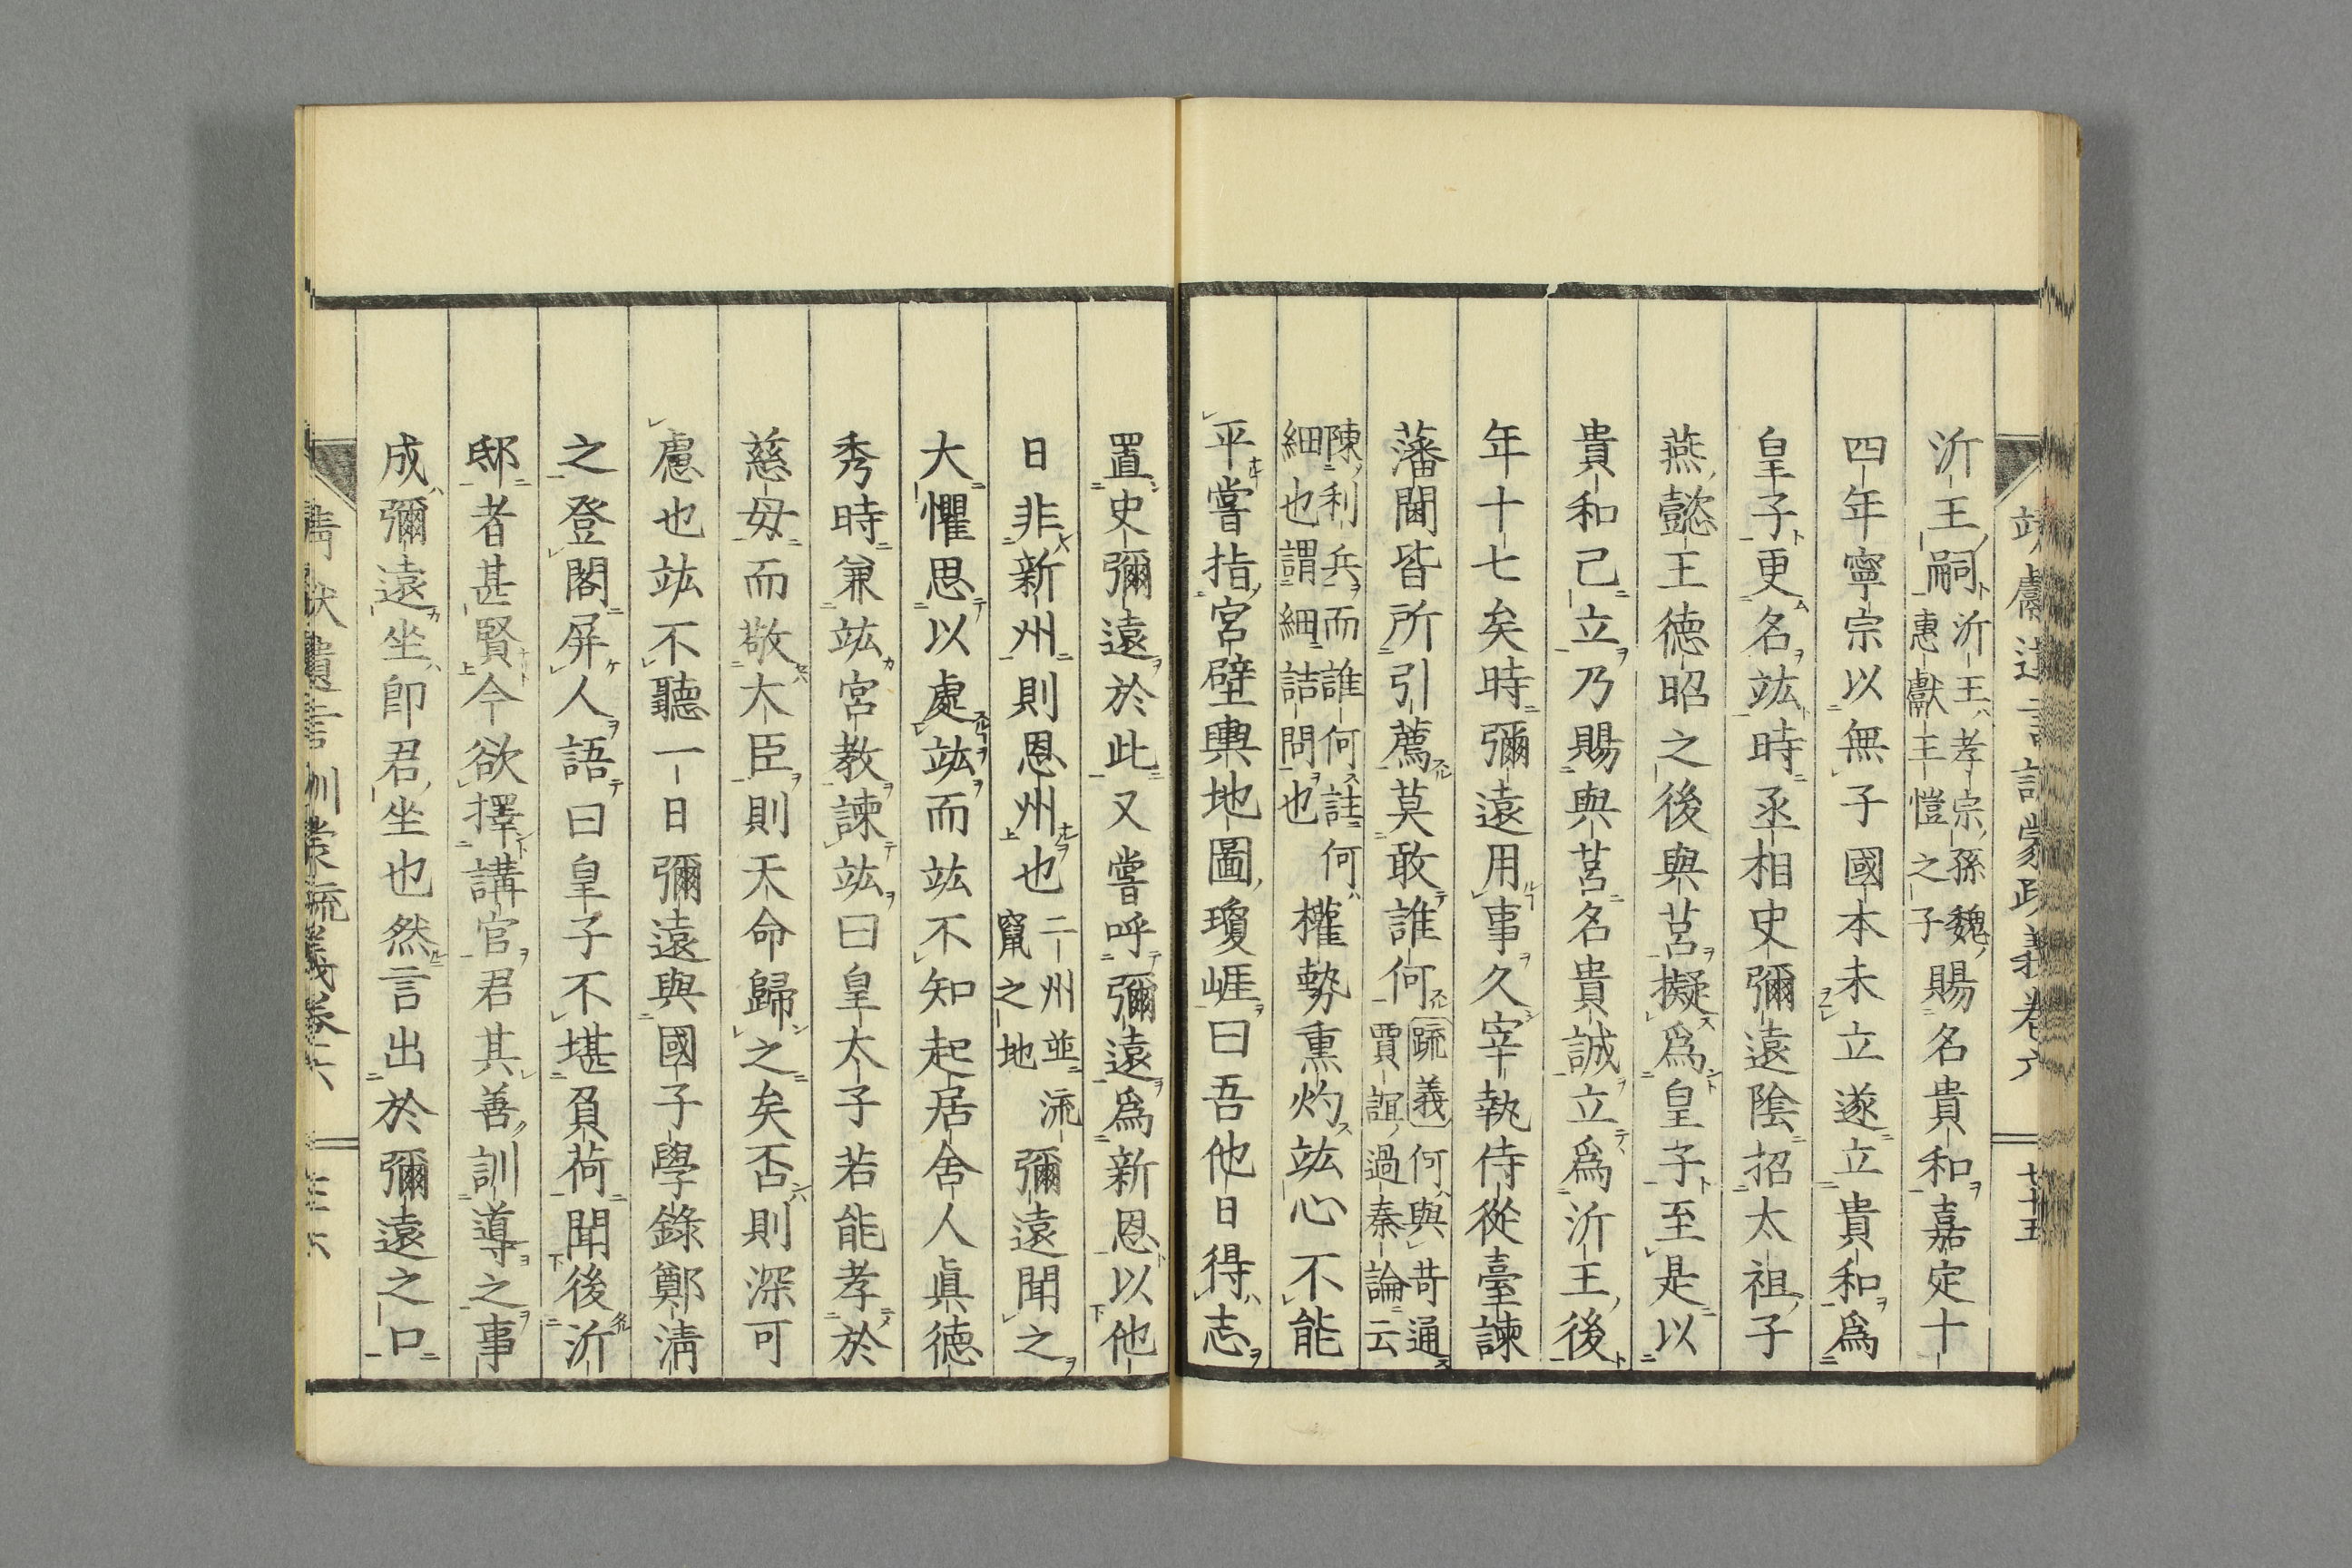 沂王嗣沂王孝宗孫魏惠獻王愷之子賜名貴和嘉定十
四年寧宗以無子國本未立遂立貴和爲
皇子更名竑時丞相史彌遠陰招太祖子
燕懿王德昭之後與莒擬爲皇子至是以
貴和已立乃賜與莒名貴誠立爲沂王後
年十七矣時彌遠用事久宰執侍從臺諫
藩閫皆所引薦莫敢誰何疏義何與苛通賈誼過秦論云
陳利兵而誰何註何細也謂細詰問也權勢熏灼竑心不能
平嘗指宮壁輿地圖瓊崖曰吾他日得志
置史彌遠於此又嘗呼彌遠爲新恩以他
日非新州則恩州也二州並流竄之地彌遠聞之
大懼思以處竑而竑不知起居舍人眞德
秀時兼竑宮教諫竑曰皇太子若能孝於
慈母而敬大臣則天命歸之矣否則深可
慮也竑不聽一日彌遠與國子學錄鄭淸
之登閣屏人語曰皇子不堪負荷聞後沂
邸者甚賢今欲擇講官君其善訓導之事
成彌遠坐即君坐也然言出於彌遠之口